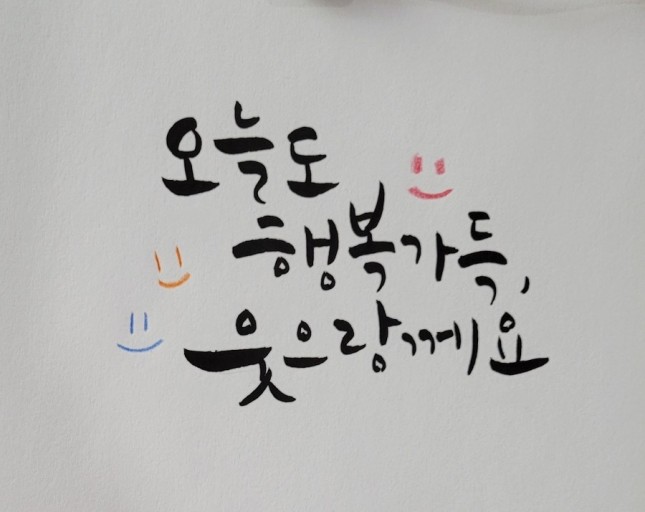 오늘도
행복가득,
웃으랑께요